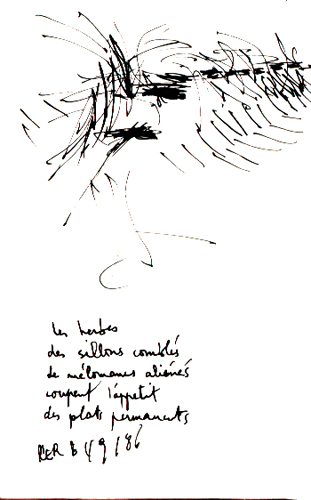 les herbes
des sillons comblés
de mélomanes aliénés
coupent l'appetit
des plats permanents